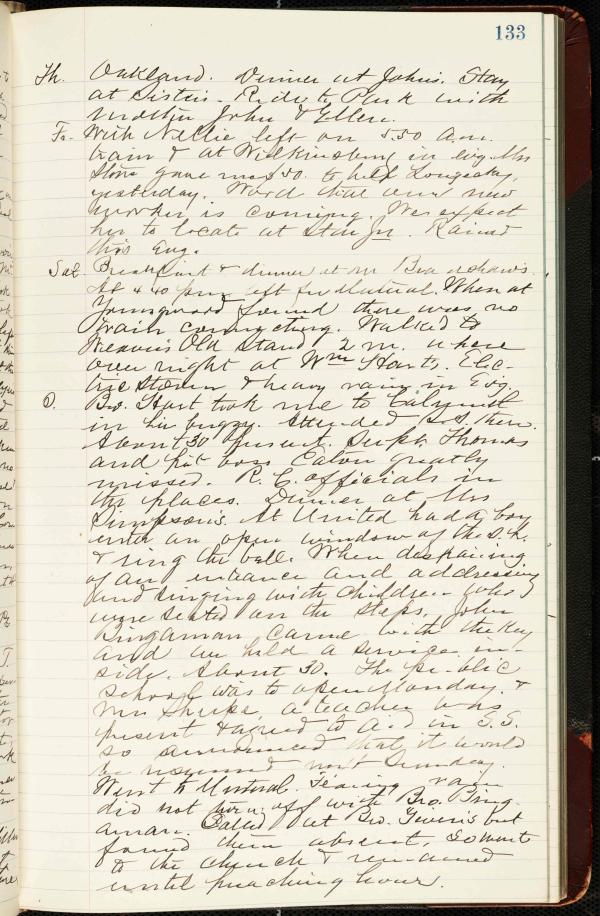 133
Th. Oakland. Dinner at John's. Stay
at Sister's. Ride to Park with
Mother John & Ellen.
Fr. With Nellie left on 5.50 a.m.
train & at Wilkinsburg in evg. Mrs
Stone gave me $50. to help
yesterday. Word that our new
worker is coming. We expect
her to locate at Star Jn. Rained
this Evg.
Sat. Breakfast & dinner at Mr Bradshaw's.
At 4.40 p.m. left for Mutual. When at
Youngwood found there was no
train connecting. Walked to
Weaver's Old Stand 2 m. where
over night at Wm Hart's. Elec-
tric storm & heavy rain in Evg.
Bro. Hart took me to Calumet
in his buggy. Attended S.S. there.
About 30 present. Supt. Thomas
and pit boss Eaton greatly
missed. R.C. officials in
the places. Dinner at Mrs
Simpson's. At United had a boy
enter an open window of the S.H.
& ring the bell. When despairing
of an entrance and addressing
and singing with children who
were seated on the steps, John
Bingaman came with the key
and we held a service in-
side. About 30. The public
school was to open Monday. &
Mr Shupe, a teacher was
present & agreed to aid in S.S.
so announced that it would
be resumed next Sunday.
Went to Mutual. Fearing rain
did not turn off with Bro. Bing-
aman. Called at Bro. but
found them absent, so went
to the church & remained
until preaching hour.